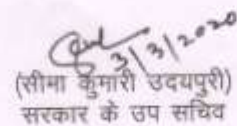 3/3/2020
(सीमा कुमारी उदयपुरी)
सरकार के उप सचिव